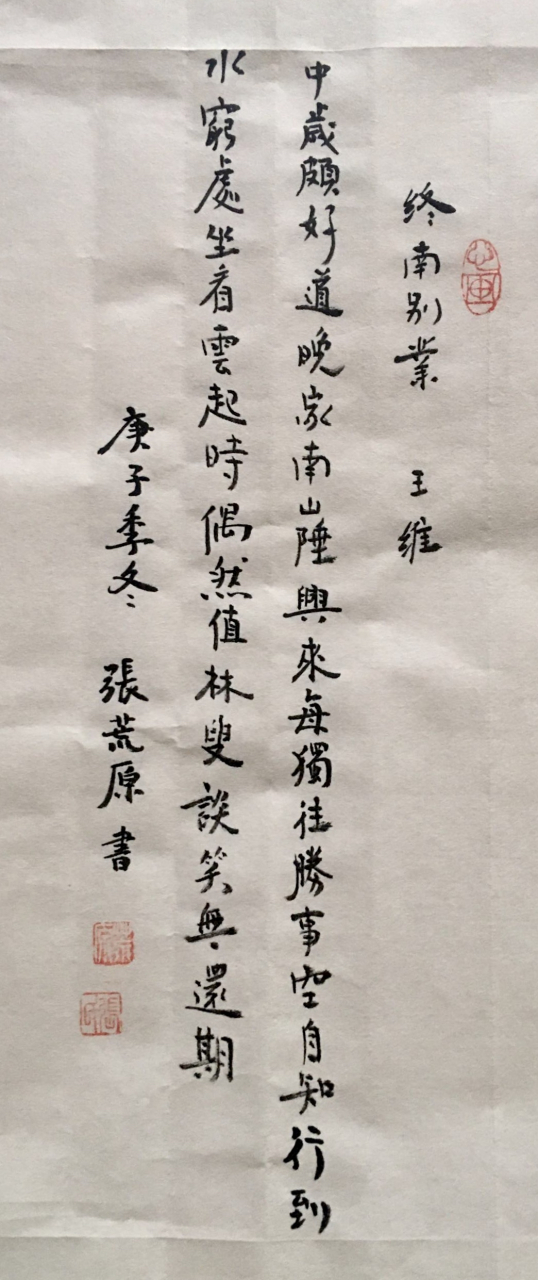 終南别業 王維
中歲頗好道晚家南山陲興來每獨往勝事空自知行到
水窮處坐看雲起時偶然值林叟談笑無還期
庚子季冬 張荒原書